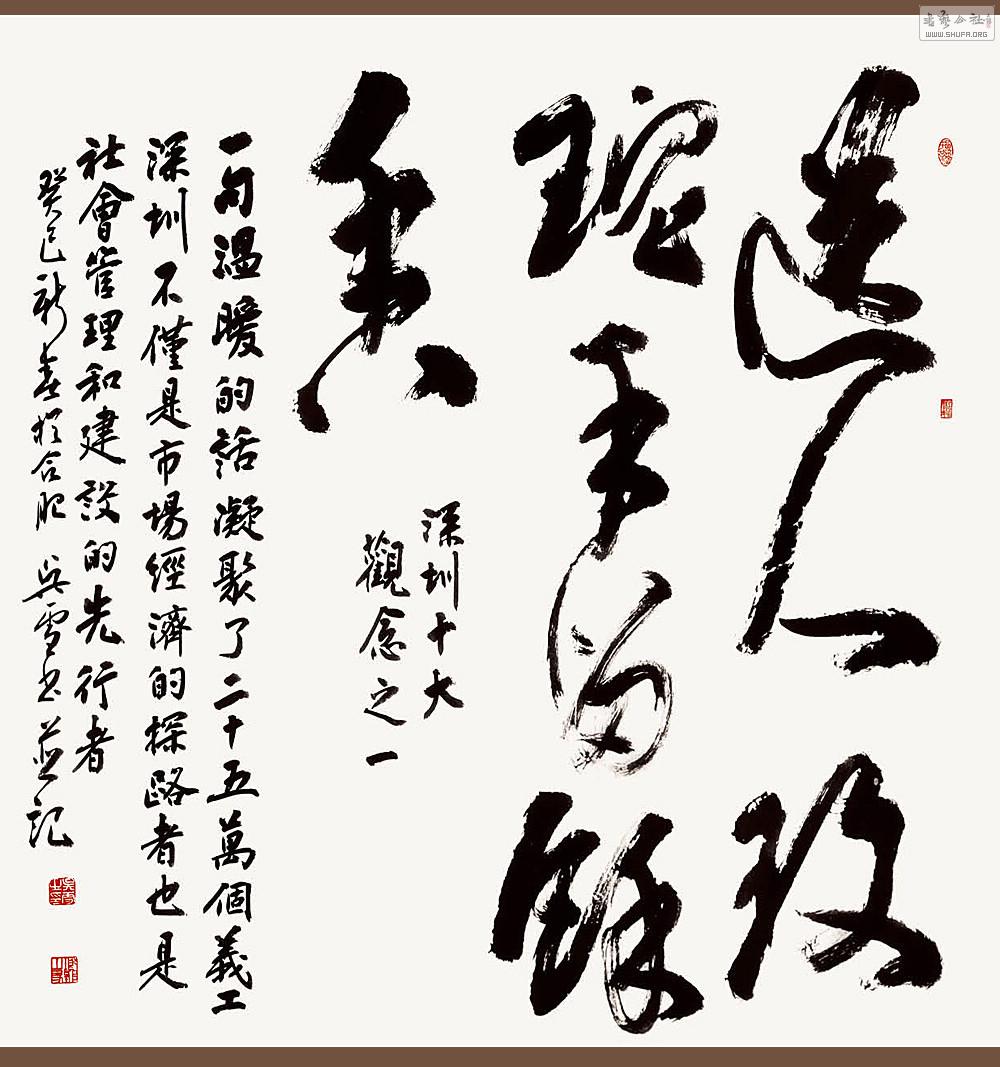 送人玫
瑰手留餘
香
深圳十大
觀念之一
一句温暖的話凝聚了二十五萬個義工
深圳不僅是市場經濟的探路者也是
社會管理和建設的先行者
癸巳新春於合肥 吳雪書並記
書藝公社
WWW.SHUFA.ORG